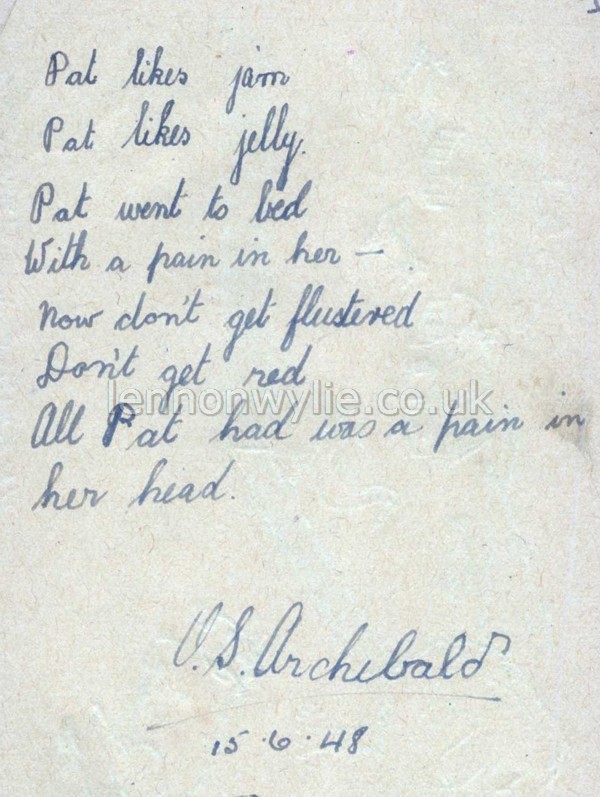 Pat likes jam
Pat likes jelly.
Pat went to bed
With a pain in her —
Now don't get flustered
Don't get red
lennonwylie.co.uk
All Pat had was a pain in
her head.
V. S. Archibald
15·6·48